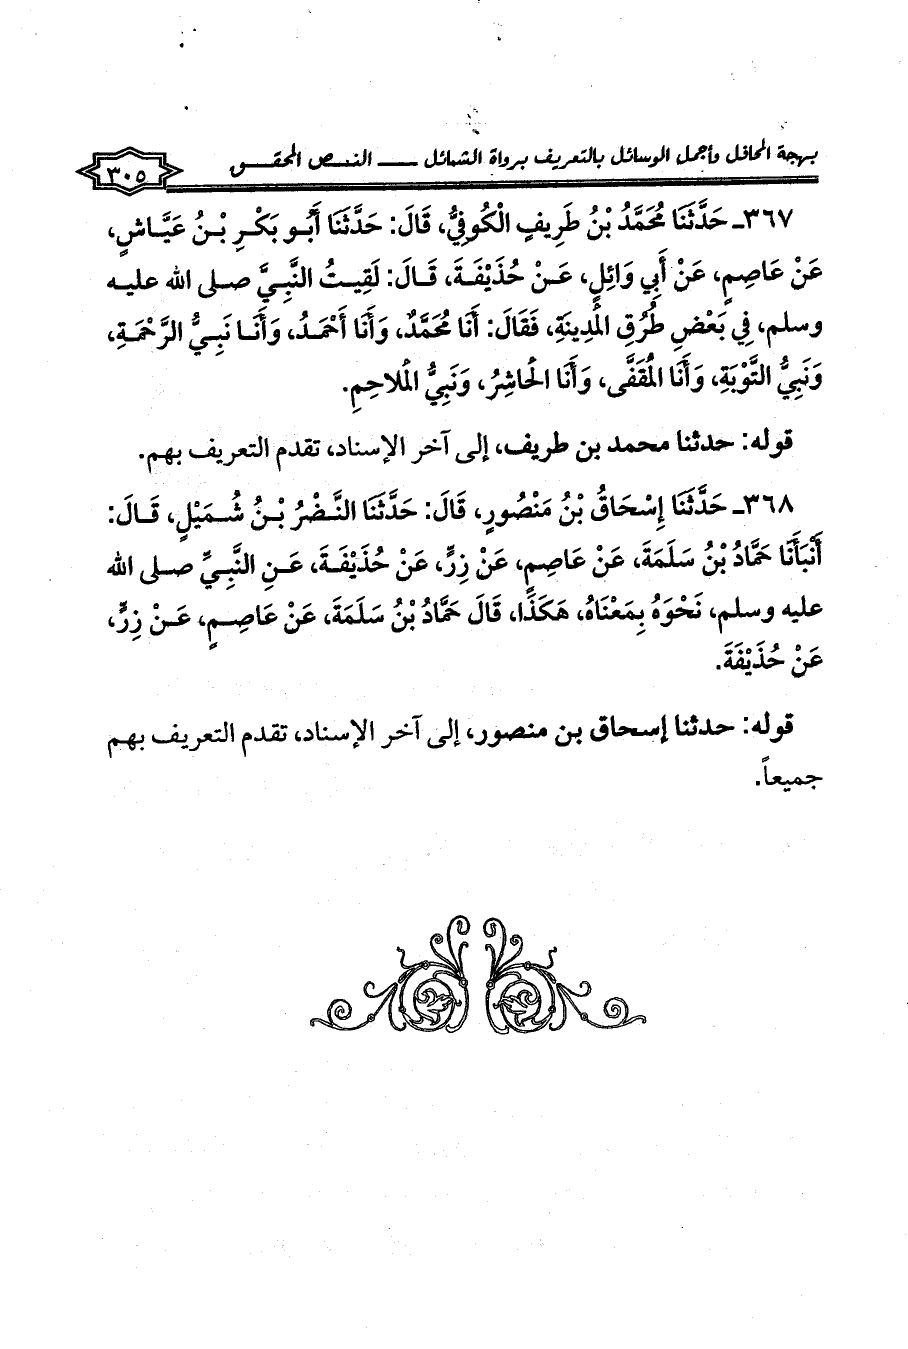 بهجة المحافل وأجمل الوسائل بالتعريف برواة الشمائل ـــ النص المحقق
٣٠٥
٣٦٧ـ حَدَّثَنَا مُحَمَّدُ بْنُ طَرِيفٍ الْكُوفِيُّ، قَالَ: حَدَّثَنَا أَبُو بَكْرِ بْنُ عَيَّاشٍ،
عَنْ عَاصِمٍ، عَنْ أَبِي وَائِلٍ، عَنْ حُذَيْفَةَ، قَالَ: لَقِيتُ النَّبِيَّ صلى الله عليه
وسلم، فِي بَعْضِ طُرُقِ الْمَدِينَةِ، فَقَالَ: أَنَا مُحَمَّدٌ، وَأَنَا أَحْمَدُ، وَأَنَا نَبِيُّ الرَّحْمَةِ،
وَنَبِيُّ التَّوْبَةِ، وَأَنَا الْمُقَفَّى، وَأَنَا الْحَاشِرُ، وَنَبِيُّ الْمَلاحِمِ.
قوله: حدثنا محمد بن طريف، إلى آخر الإسناد، تقدم التعريف بهم.
٣٦٨ـ حَدَّثَنَا إِسْحَاقُ بْنُ مَنْصُورٍ، قَالَ: حَدَّثَنَا النَّضْرُ بْنُ شُمَيْلٍ، قَالَ:
أَنْبَأَنَا حَمَّادُ بْنُ سَلَمَةَ، عَنْ عَاصِمٍ، عَنْ زِرٍّ، عَنْ حُذَيْفَةَ، عَنِ النَّبِيِّ صلى الله
عليه وسلم، نَحْوَهُ بِمَعْنَاهُ، هَكَذَا، قَالَ حَمَّادُ بْنُ سَلَمَةَ، عَنْ عَاصِمٍ، عَنْ زِرٍّ،
عَنْ حُذَيْفَةَ.
قوله: حدثنا إسحاق بن منصور، إلى آخر الإسناد، تقدم التعريف بهم
جميعاً.